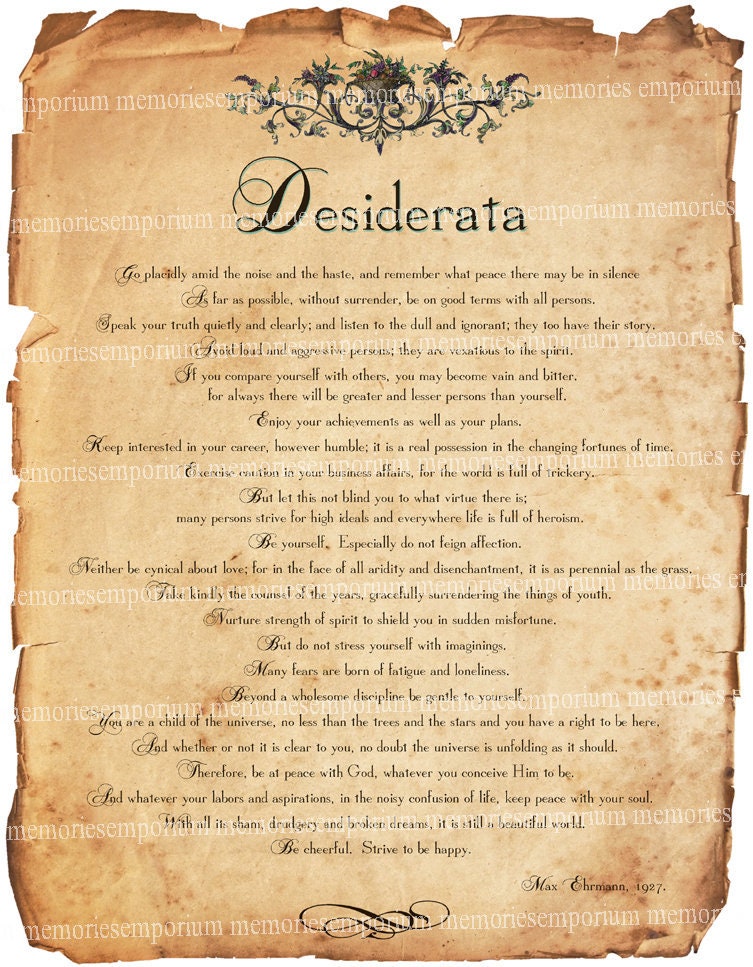 memoriesemporium memoriesemporium memoriesemporium memories
Desiderata
memoriesemporium memoriesemporium memoriesemporium memories
Go placidly amid the noise and the haste, and remember what peace there may be in silence
As far as possible, without surrender, be on good terms with all persons.
Speak your truth quietly and clearly; and listen to the dull and ignorant; they too have their story.
memoriesemporium memoriesemporium memoriesemporium memories
Avoid loud and aggressive persons; they are vexatious to the spirit.
If you compare yourself with others, you may become vain and bitter.
for always there will be greater and lesser persons than yourself.
Enjoy your achievements as well as your plans.
Keep interested in your career, however humble; it is a real possession in the changing fortunes of time.
memoriesemporium memoriesemporium memoriesemporium memories
Exercise caution in your business affairs, for the world is full of trickery.
But let this not blind you to what virtue there is;
many persons strive for high ideals and everywhere life is full of heroism.
Be yourself. Especially do not feign affection.
Neither be cynical about love; for in the face of all aridity and disenchantment, it is as perennial as the grass.
memoriesemporium memoriesemporium memoriesemporium memories
Take kindly the counsel of the years, gracefully surrendering the things of youth.
Nurture strength of spirit to shield you in sudden misfortune.
But do not stress yourself with imaginings.
Many fears are born of fatigue and loneliness.
Beyond a wholesome discipline be gentle to yourself.
memoriesemporium memoriesemporium memoriesemporium memories
You are a child of the universe, no less than the trees and the stars and you have a right to be here,
And whether or not it is clear to you, no doubt the universe is unfolding as it should.
Therefore, be at peace with God, whatever you conceive Him to be.
And whatever your labors and aspirations, in the noisy confusion of life, keep peace with your soul.
With all its sham, drudgery and broken dreams, it is still a beautiful world.
memoriesemporium memoriesemporium memoriesemporium memories
Be cheerful. Strive to be happy.
Max Ehrmann, 1927.
memoriesemporium memoriesemporium memoriesemporium memories